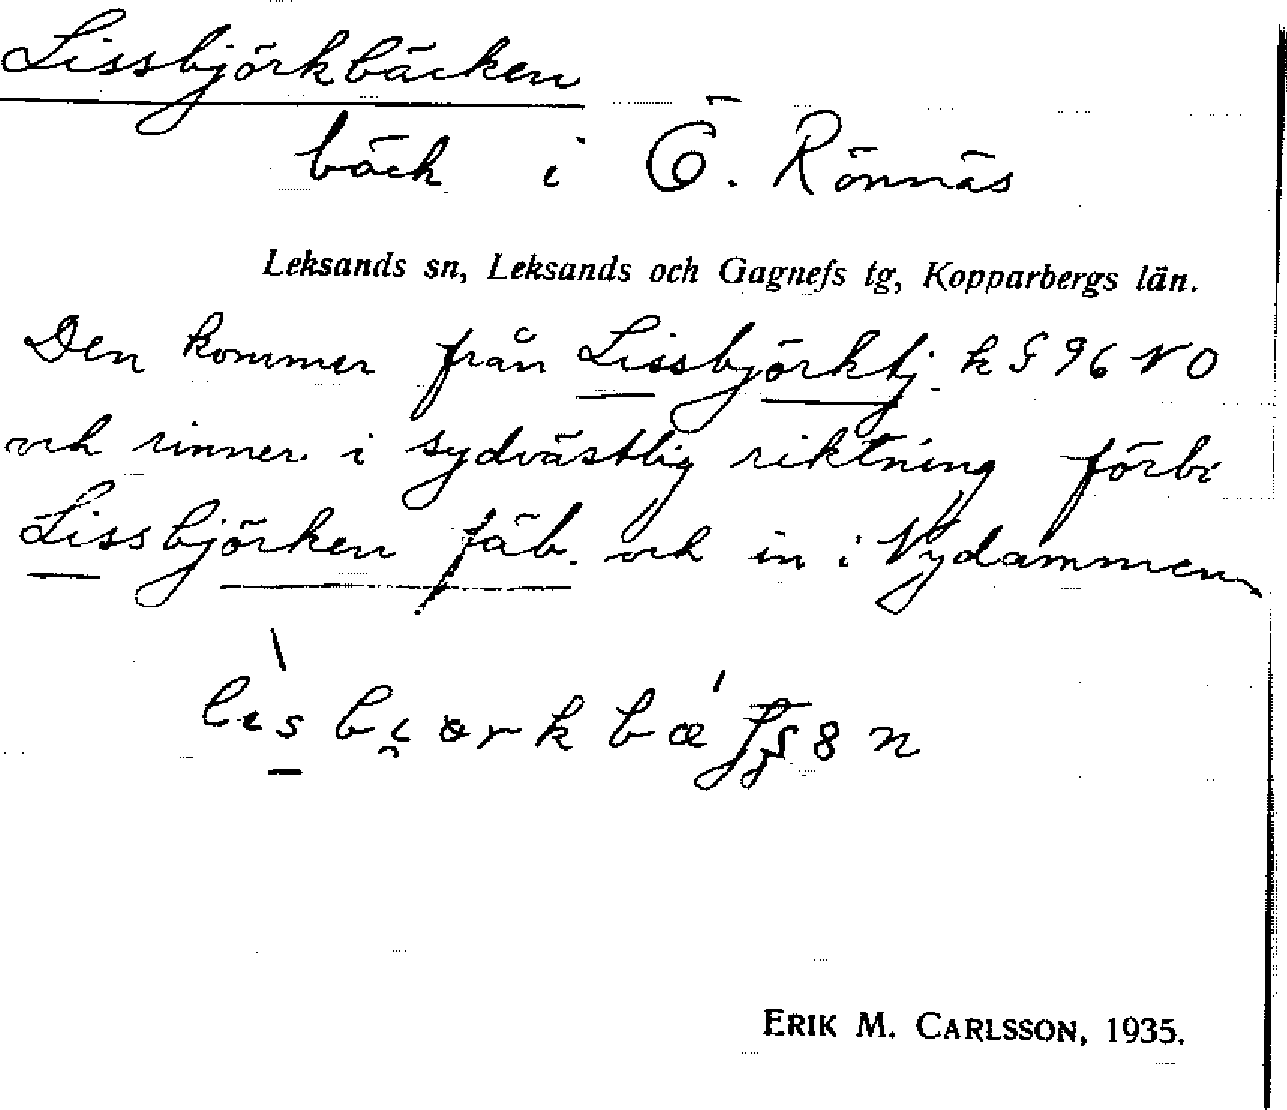 Lissbjörkbäcken
bäck i Ö. Rönnäs
Leksands sn, Leksands och Gagnefs tg, Kopparbergs län.
Den kommer från Lissbjörktj. k § 96 NO
och rinner i sydvästlig riktning förbi
Lissbjörken fäb. och in i Nydammen
ERIK M. CARLSSON, 1935.